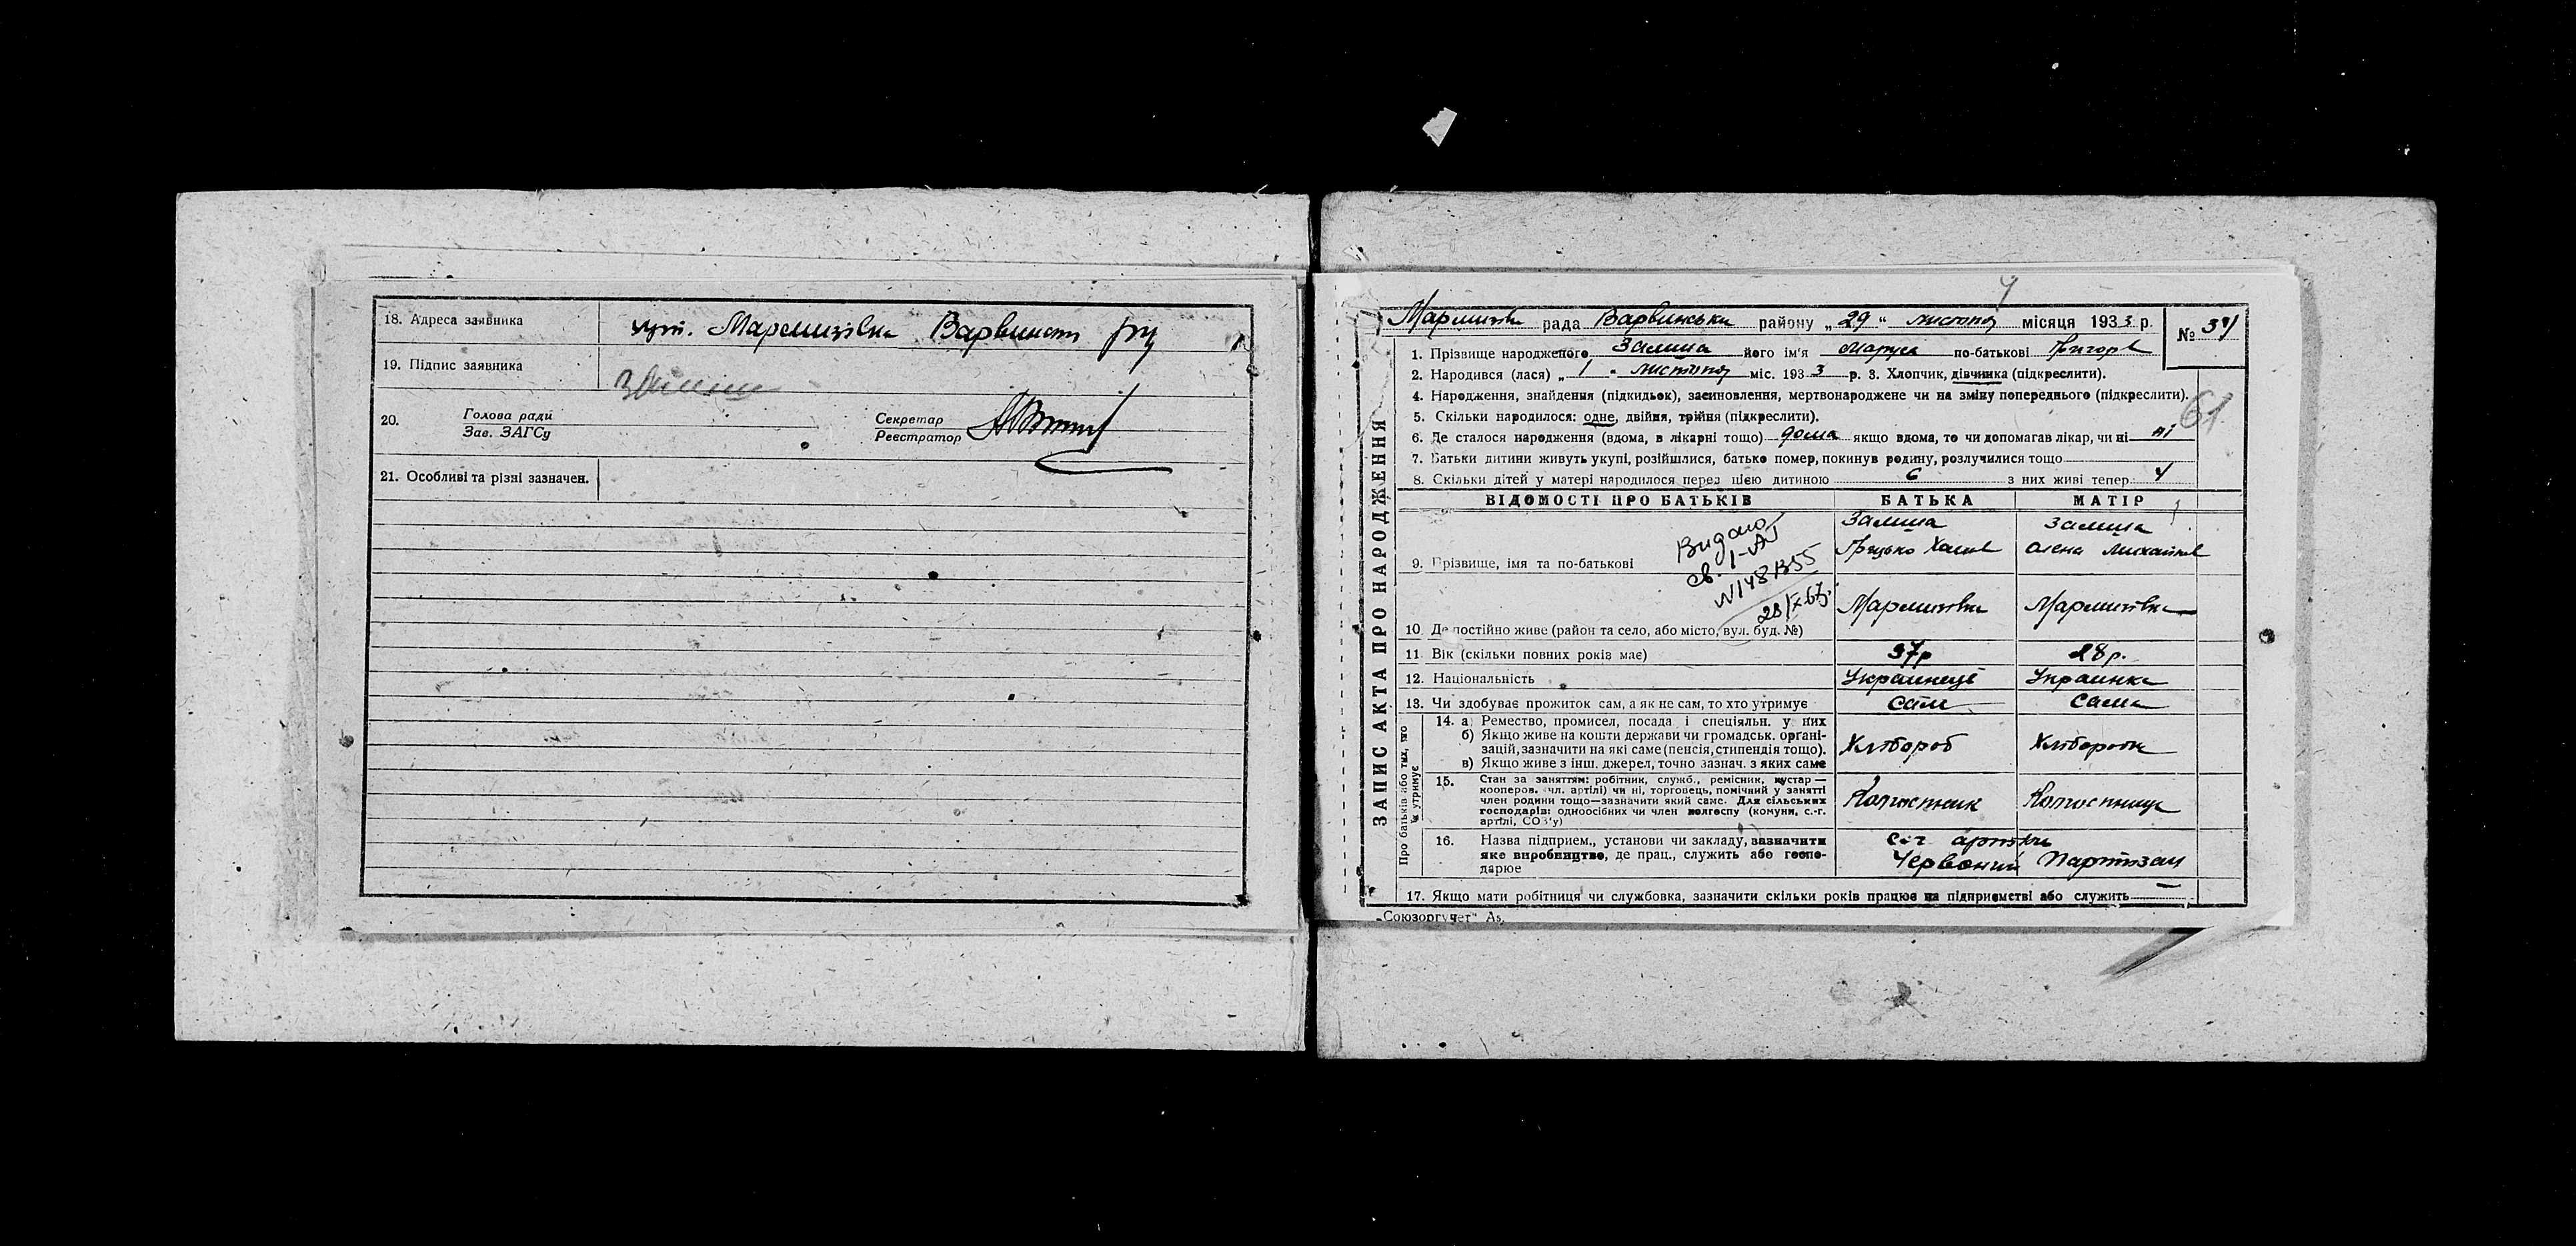 18. Адреса заявника хут. Мармизівка Варвинськ
19. Підпис заявника
20. Голова ради
Зав. ЗАГСу
Секретар
Реєстратор
21. Особливі та різні зазначен.
ЗАПИС АКТА ПРО НАРОДЖЕННЯ
рада Варвинська району „29“ листопад місяця 1933 р.
№
1. Прізвище народженого його ім'я Маруся по-батькові Григорів
2. Народився (лася) „1“ листопад міс. 1933 р. 3. Хлопчик, дівчинка (підкреслити).
4. Народження, знайдення (підкидьок), засиновлення, мертвонароджене чи на зміну попереднього (підкреслити).
61
5. Скільки народилося: одне, двійня, трійня (підкреслити).
6. Де сталося народження (вдома, в лікарні тощо) дома якщо вдома, то чи допомагав лікар, чи ні ні
7. Батьки дитини живуть укупі, розійшлися, батько помер, покинув родину, розлучилися тощо
8. Скільки дітей у матері народилося перед цією дитиною 6 з них живі тепер 4
ВІДОМОСТІ ПРО БАТЬКІВ БАТЬКА МАТІР
9. Прізвище, імя та по-батькові
Грицько Олена Михайлів
Видано
св. 1-АЛ
28/X-67р.
10. Де постійно живе (район та село, або місто, вул. буд. №) Мармизівка Мармизівка
11. Вік (скільки повних років має) 37р 28р.
12. Національність Украинець Украинка
13. Чи здобуває прожиток сам, а як не сам, то хто утримує сам сама
Про батьків або тих, хто їх утримує
14. а) Ремество, промисел, посада і спеціяльн. у них
б) Якщо живе на кошти держави чи громадськ. органі-
зацій, зазначити на які саме (пенсія, стипендія тощо).
в) Якщо живе з інш. джерел, точно зазнач. з яких саме
Хлібороб Хлібороб
15. Стан за заняттям: робітник, служб., ремісник, кустар—
кооперов. (чл. артілі) чи ні, торговець, помічний у занятті
член родини тощо—зазначити який саме. Для сільських
господарів: одноосібних чи член колгоспу (комуни, с.-г.
артілі, СОЗ'у)
16. Назва підприєм., установи чи закладу, зазначити
яке виробництво, де прац., служить або госпо-
дарює
с.г артіль
Червоний Партизан
17. Якщо мати робітниця чи службовка, зазначити скільки років працює на підприємстві або служить —
„Союзоргучет“